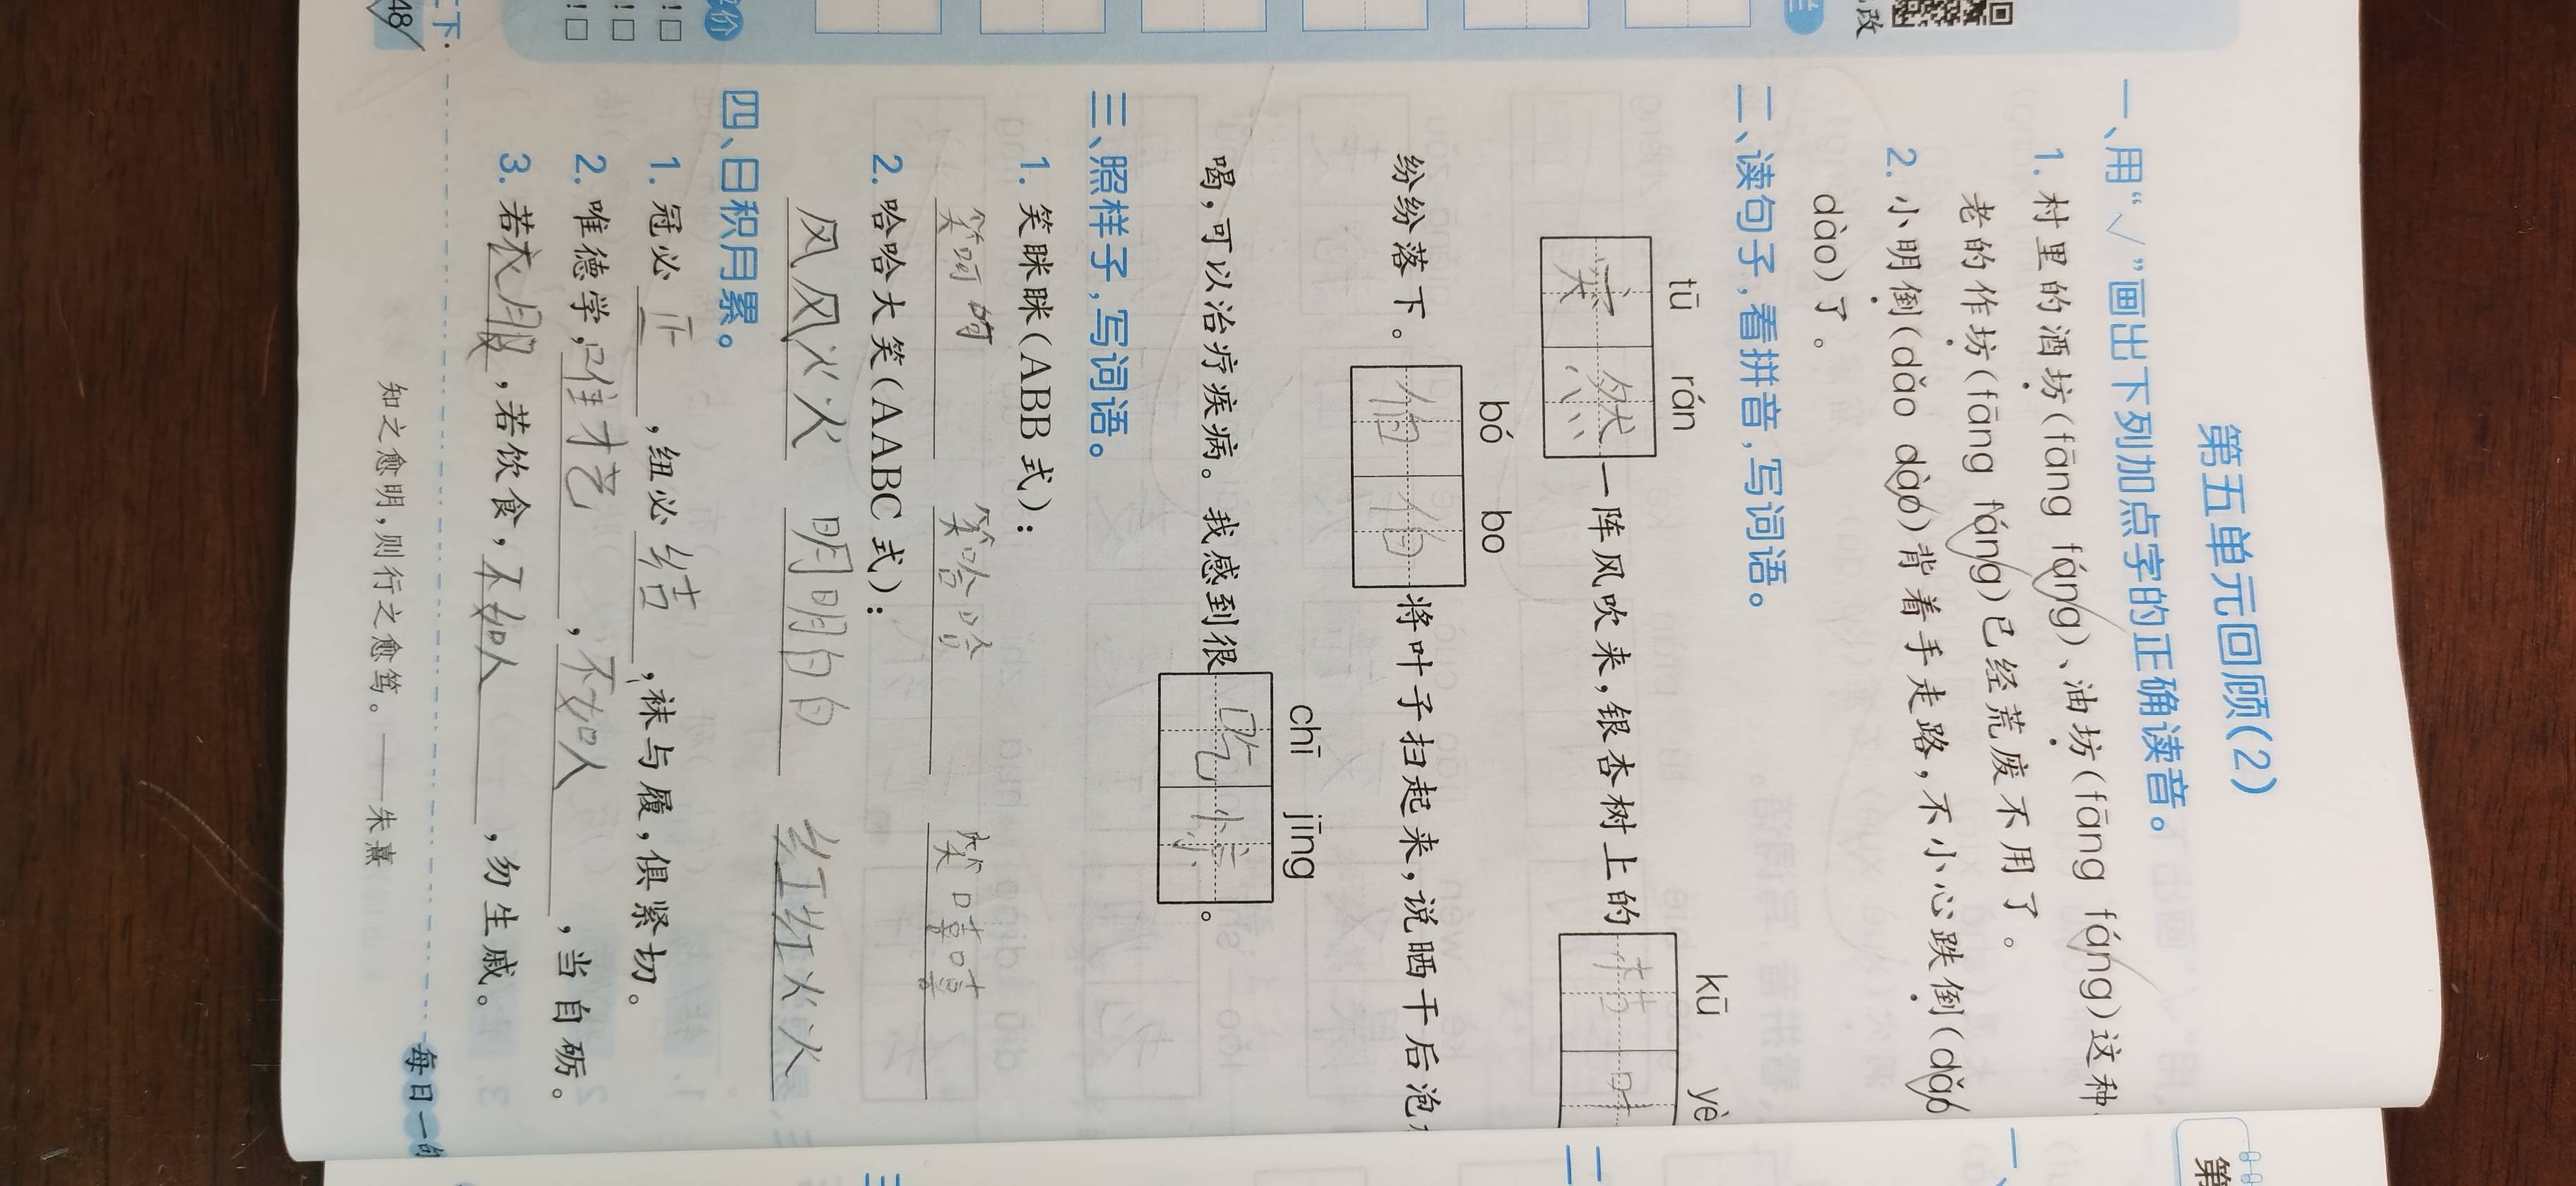 第五单元回顾(2)
一、用“√”画出下列加点字的正确读音。
1. 村里的酒坊(fāng fáng)、油坊(fāng fáng)这种
老的作坊(fāng fáng)已经荒废不用了。
2. 小明倒(dǎo dào)背着手走路,不小心跌倒(dǎo
dào)了。
二、读句子,看拼音,写词语。
tū rán kū yè
突然一阵风吹来,银杏树上的枯叶
纷纷落下。
bó bo
伯伯将叶子扫起来,说晒干后泡
喝,可以治疗疾病。我感到很
chī jīng
吃惊。
三、照样子,写词语。
1. 笑眯眯(ABB 式):
笑呵呵 笑哈哈 笑嘻嘻
2. 哈哈大笑(AABC 式):
风风火火 明明白白 红红火火
四、日积月累。
1. 冠必正,纽必结,袜与履,俱紧切。
2. 唯德学,唯才艺,不如人,当自砺。
3. 若衣服,若饮食,不如人,勿生戚。
每日一句
知之愈明,则行之愈笃。——朱熹
二下·
48
价
改
! □
! □
! □
第
一、
二
三